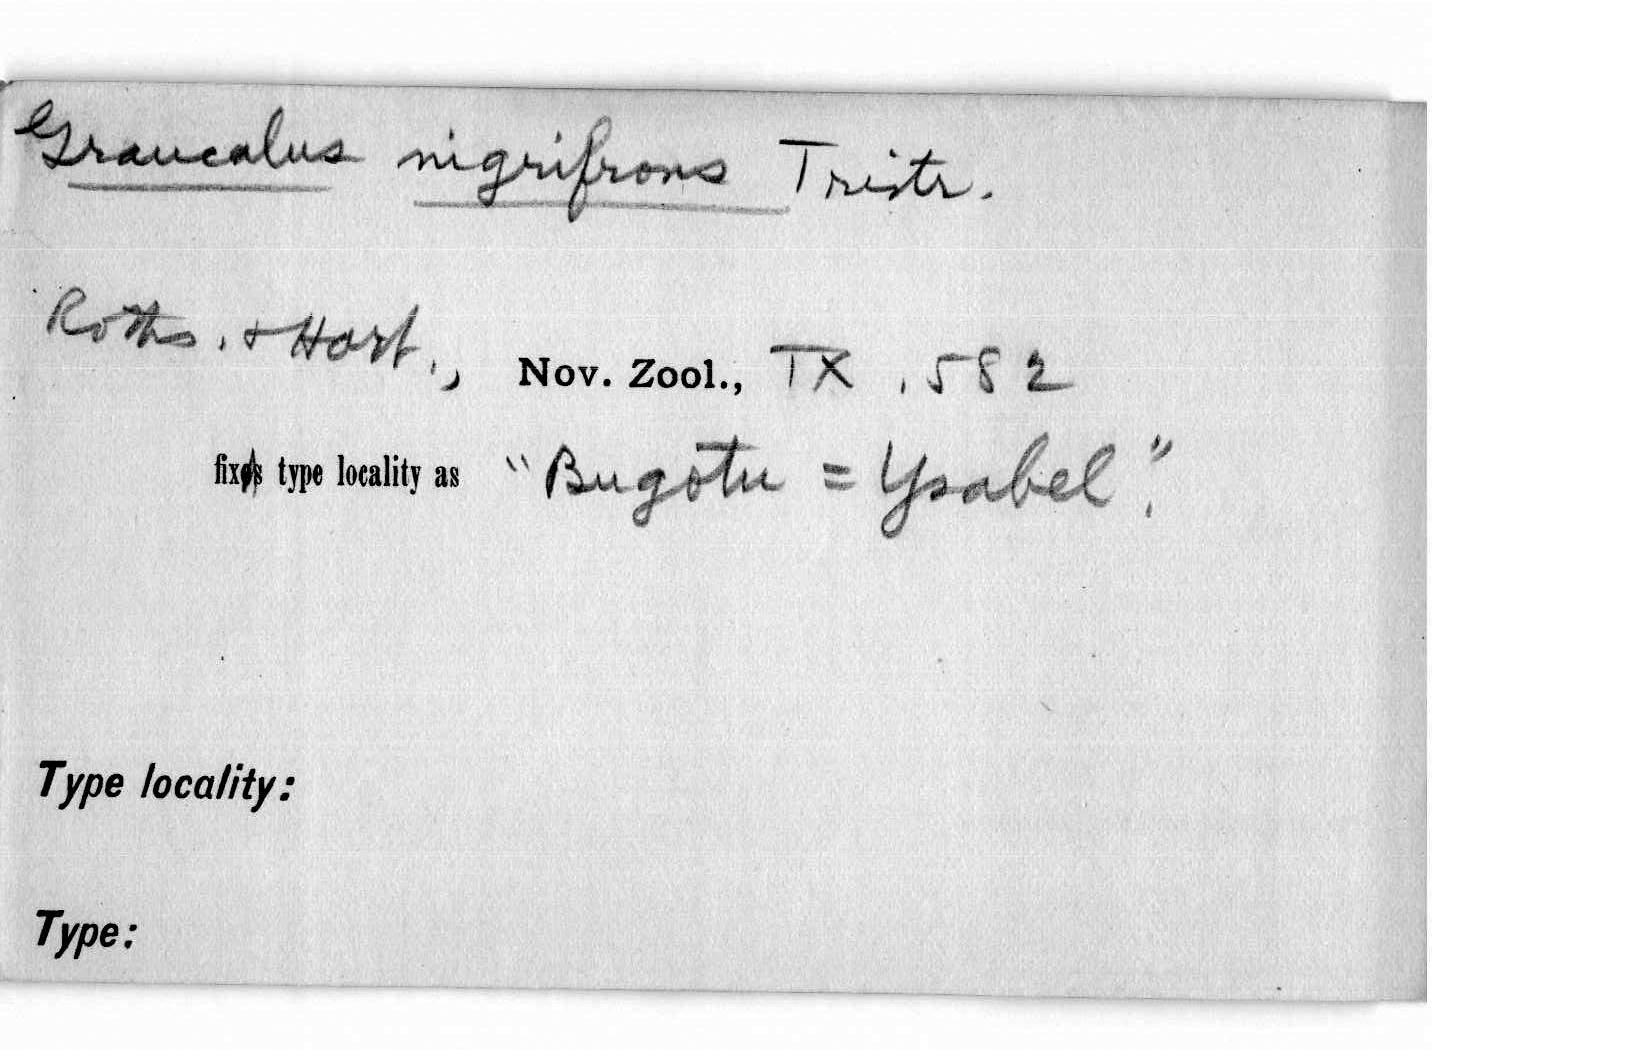 Graucalus nigrifrons Tristr.
Roths. & Hart., Nov. Zool., IX, 582
fix type locality as "Bugotu = Ysabel".
Type locality:
Type: